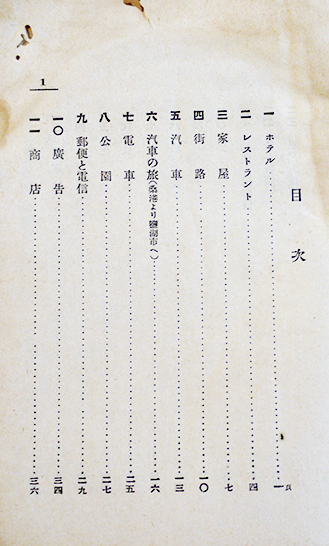 目次
頁
一 ホテル……一
二 レストラント……四
三 家屋……七
四 街路……一〇
五 汽車……一三
六 汽車の旅(桑港より鹽湖市へ)……一六
七 電車……二五
八 公園……二七
九 郵便と電信……二九
一〇 廣告……三四
一一 商店……三六
1